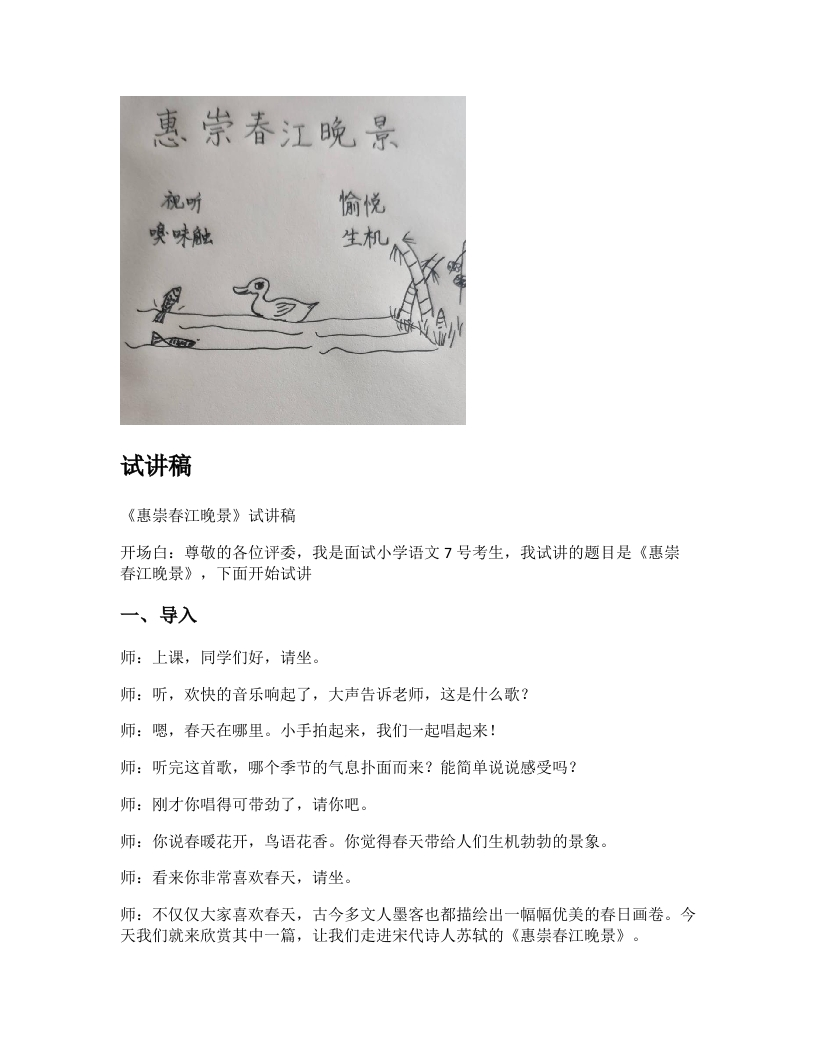 惠崇春江晚景
视听 愉悦
嗅味触 生机
试讲稿
《惠崇春江晚景》试讲稿
开场白：尊敬的各位评委，我是面试小学语文 7 号考生，我试讲的题目是《惠崇
春江晚景》，下面开始试讲
一、导入
师：上课，同学们好，请坐。
师：听，欢快的音乐响起了，大声告诉老师，这是什么歌？
师：嗯，春天在哪里。小手拍起来，我们一起唱起来！
师：听完这首歌，哪个季节的气息扑面而来？能简单说说感受吗？
师：刚才你唱得可带劲了，请你吧。
师：你说春暖花开，鸟语花香。你觉得春天带给人们生机勃勃的景象。
师：看来你非常喜欢春天，请坐。
师：不仅仅大家喜欢春天，古今多文人墨客也都描绘出一幅幅优美的春日画卷。今
天我们就来欣赏其中一篇，让我们走进宋代诗人苏轼的《惠崇春江晚景》。